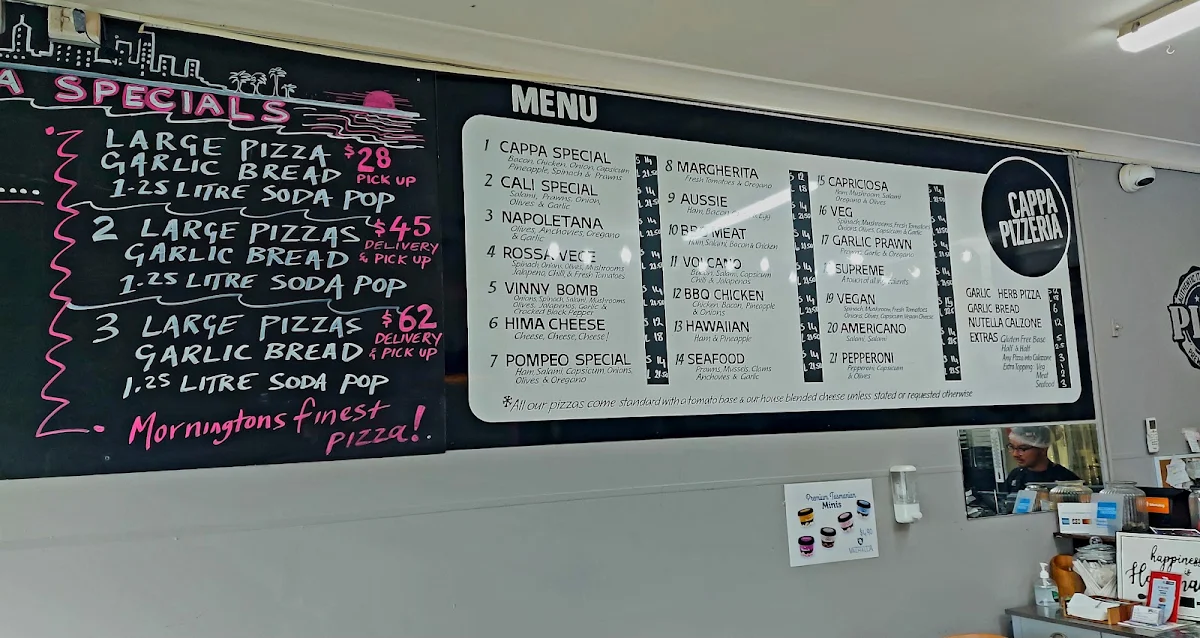 A SPECIALS
LARGE PIZZA
GARLIC BREAD
1.25 LITRE SODA POP
$28
PICK UP
2 LARGE PIZZAS
GARLIC BREAD
1.25 LITRE SODA POP
$45
DELIVERY
& PICK UP
3 LARGE PIZZAS
GARLIC BREAD
1.25 LITRE SODA POP
$62
DELIVERY
& PICK UP
Morningtons finest
pizza!
MENU
1 CAPPA SPECIAL
Bacon, Chicken, Onion, Capsicum
Pineapple, Spinach & Prawns
2 CALI SPECIAL
Salami, Prawns, Onion,
Olives & Garlic
3 NAPOLETANA
Olives, Anchovies, Oregano
& Garlic
4 ROSSA VEGE
Spinach, Onions, Olives, Mushrooms
Jalapeno, Chilli & Fresh Tomatoes
5 VINNY BOMB
Onions, Spinach, Salami, Mushrooms
Olives, Jalapenos, Garlic &
Cracked Black Pepper
6 HIMA CHEESE
Cheese, Cheese, Cheese!
7 POMPEO SPECIAL
Ham, Salami, Capsicum, Onions,
Olives & Oregano
S 14
L 21.50
S 12
L 18
S 14
L 21.50
8 MARGHERITA
Fresh Tomatoes & Oregano
9 AUSSIE
Ham, Bacon Egg
10 BBQ MEAT
Ham, Salami, Bacon & Chicken
11 VOLCANO
Bacon, Salami, Capsicum
Chilli & Jalapenos
12 BBQ CHICKEN
Chicken, Bacon, Pineapple
& Onions
13 HAWAIIAN
Ham & Pineapple
14 SEAFOOD
Prawns, Mussels, Clams
Anchovies & Garlic
S 12
L 18
15 CAPRICIOSA
Ham, Mushroom, Salami
Oregano & Olives
16 VEG
Spinach, Mushrooms, Fresh Tomatoes
Onions, Olives, Capsicum & Garlic
17 GARLIC PRAWN
Prawns, Garlic & Oregano
SUPREME
19 VEGAN
Spinach, Mushroom, Fresh Tomatoes
Onions, Olives, Capsicum, Vegan Cheese
20 AMERICANO
Salami, Salami
21 PEPPERONI
Pepperoni, Capsicum
& Olives
CAPPA
PIZZERIA
GARLIC HERB PIZZA
GARLIC BREAD
NUTELLA CALZONE
EXTRAS Gluten Free Base
Half & Half
Any Pizza into Calazone
Extra Topping Veg
Meat
Seafood
*All our pizzas come standard with a tomato base & our house blended cheese unless stated or requested otherwise
Premium Tasmanian
Mints
happiness
is